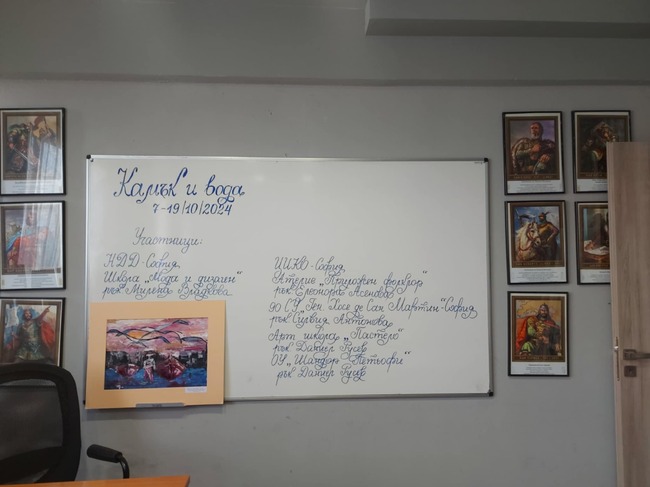 Камък и вода
7-19/10/2024
Участници:
НДД-София,
Школа „Мода и дизайн"
рък. Милена Владкова
ЦИКО-София,
Ателие „Приложен фолклор"
рък. Елеонора Асенова
90 СУ „Ген. Хосе де Сан Мартин"-София
рък. Силвия Антонова
Арт школа „Пастел"
рък. Даниел Русев
ОУ „Шандор Петьофи"
рък. Даниел Русев